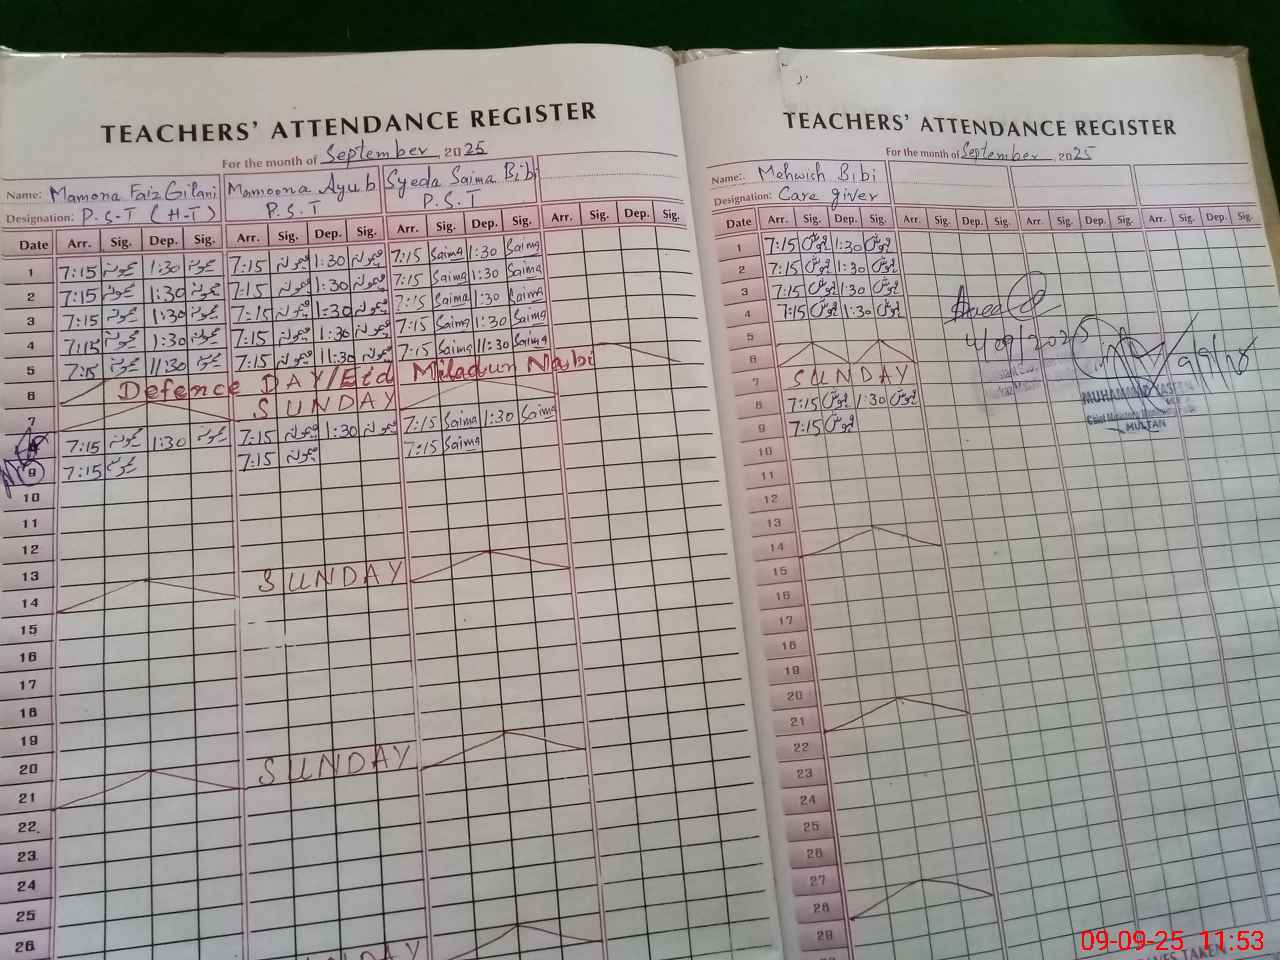 TEACHERS' ATTENDANCE REGISTER
For the month of September 2025
Name: Mamona Faiz Gilani Mamoona Ayub Syeda Saima Bibi
Designation: P.S.T (H-T) P.S.T P.S.T
Date Arr. Sig. Dep. Sig. Arr. Sig. Dep. Sig. Arr. Sig. Dep. Sig. Arr. Sig. Dep. Sig.
1 7:15 1:30 7:15 1:30 7:15 Saima 1:30 Saima
2 7:15 1:30 7:15 1:30 7:15 Saima 1:30 Saima
3 7:15 1:30 7:15 1:30 7:15 Saima 1:30 Saima
4 7:15 1:30 7:15 1:30 7:15 Saima 1:30 Saima
5 7:15 11:30 7:15 11:30 7:15 Saima 11:30 Saima
6 Defence DAY/Eid Miladun Nabi
7 SUNDAY
7:15 1:30 7:15 1:30 7:15 Saima 1:30 Saima
9 7:15 7:15 7:15 Saima
10
11
12
13
14 SUNDAY
15
16
17
18
19
20
21 SUNDAY
22
23
24
25
26
TEACHERS' ATTENDANCE REGISTER
For the month of September 2025
Name: Mehwish Bibi
Designation: Care giver
Date Arr. Sig. Dep. Sig. Arr. Sig. Dep. Sig. Arr. Sig. Dep. Sig. Arr. Sig. Dep. Sig.
1 7:15 مہوش 1:30 مہوش
2 7:15 مہوش 1:30 مہوش
3 7:15 مہوش 1:30 مہوش
4 7:15 مہوش 1:30 مہوش
5
6
7 SUNDAY
8 7:15 مہوش 1:30 مہوش
9 7:15 مہوش
10
11
12
13
14
15
16
17
18
19
20
21
22
23
24
25
26
27
28
29
4/09/2025
MUHAMMAD YASEEN
MULTAN
09-09-25 11:53